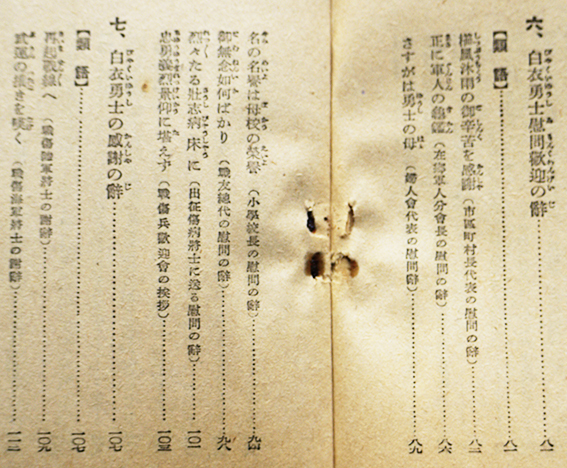 六、白衣勇士慰問歡迎の辭……八一
【類語】……八一
櫛風沐雨の御辛苦を感謝（市區町村長代表の慰問の辭）……八二
正に軍人の龜鑑（在鄕軍人分會長の慰問の辭）……八六
さすがは勇士の母（婦人會代表の慰問の辭）……八九
名の名譽は母校の榮譽（小學校長の慰問の辭）……九四
御無念如何ばかり（職友總代の慰問の辭）……九八
烈々たる壯志病床に（出征傷病將士に送る慰問の辭）……一〇一
忠勇義烈景仰に堪えず（戰傷兵歡迎會の挨拶）……一〇三
七、白衣勇士の感謝の辭……一〇七
【類語】……一〇七
再起戰線へ（戰傷陸軍將士の謝辭）……一〇九
武運の拙きを嘆く（戰傷海軍將士の謝辭）……一一二